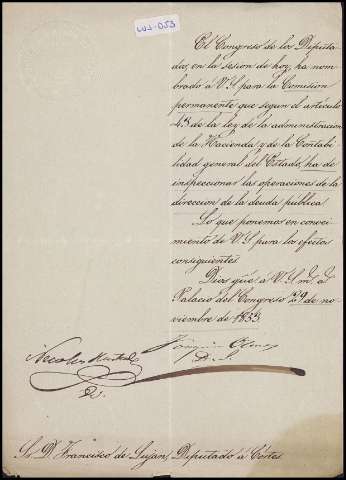 El Congreso de los Diputa-
dos, en la sesion de hoy, ha nom-
brado á V.S. para la Comision
permanente que segun el articulo
43 de la ley de la administracion
de la Hacienda y de la Contabi-
lidad general del Estado, ha de
inspeccionar las operaciones de la
direccion de la deuda publica.
Lo que ponemos en conoci-
miento de V.S. para los efectos
consiguientes.
Dios gue á V.S. m. a.
Palacio del Congreso 29 de no-
viembre de 1853
Nicolas Hurtado
D. S.
D. S.
Sr. D. Francisco de Lujan, Diputado á Cortes.